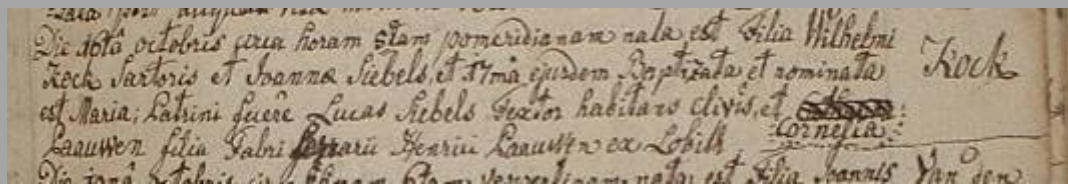 Die 16tâ octobris circa horam 5tam pomeridianam nata est Filia Wilhelmi
Kock
Kock Sartoris et Joannæ Siebels, et 17mâ ejusdem Baptizata et nominata
est Maria; Patrini fuêre Lucas Siebels Textor habitans Clivis, et
Cornelia
Paauwen filia Fabri ferrarii Henrici Paauwen ex Lobith
octobris est Filia Joannis Van den